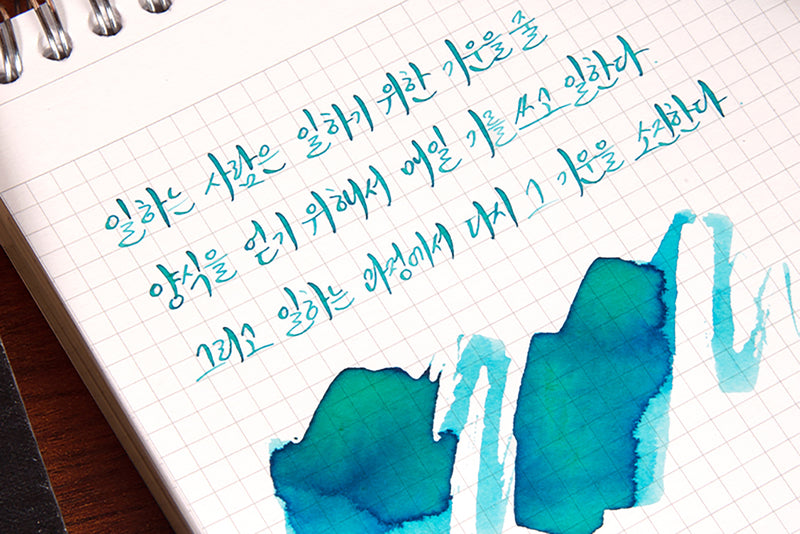 일하는 사람은 일하기 위한 기운을 줄
양식을 얻기 위해서 매일 기를 쓰고 일한다.
그리고 일하는 과정에서 다시 그 기운을 소진한다.